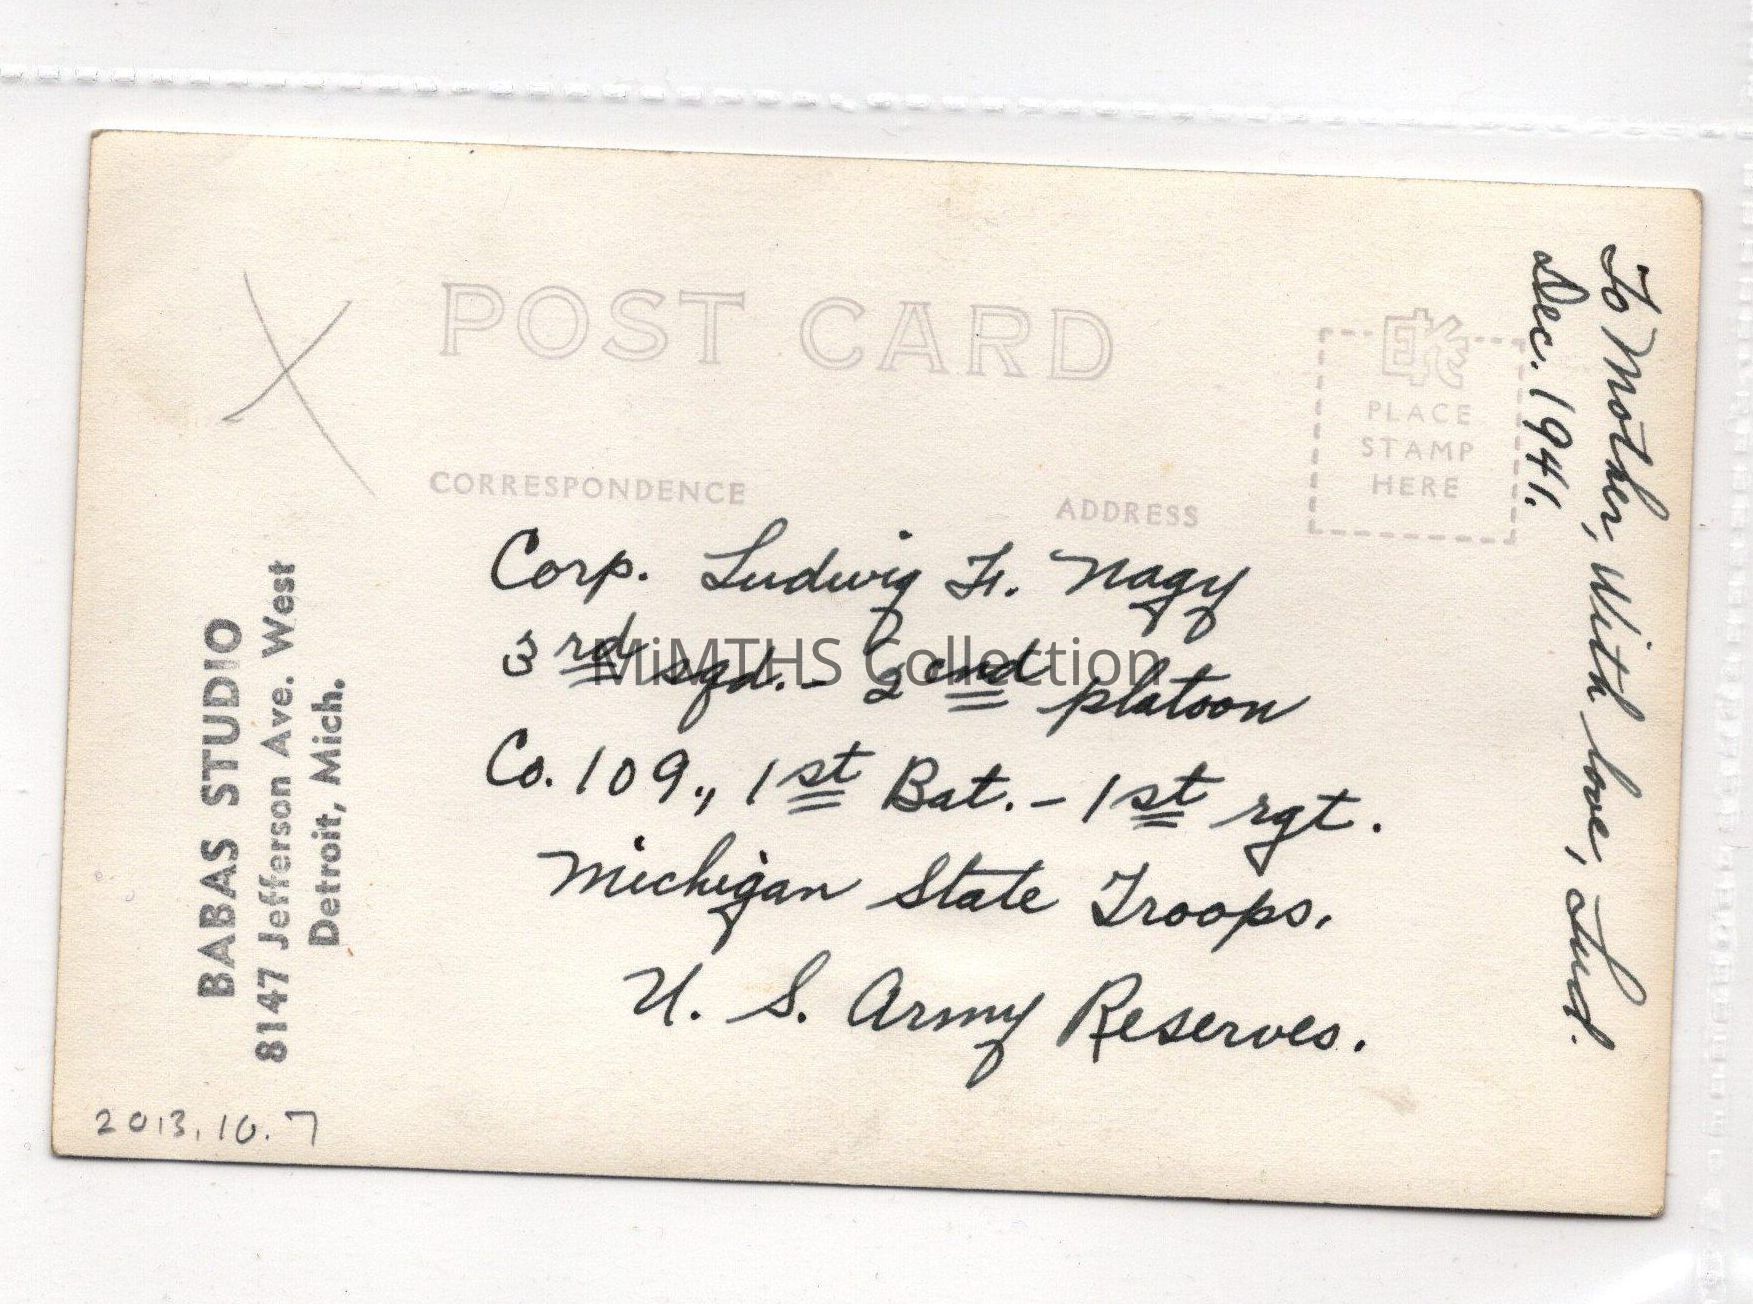 POST CARD
CORRESPONDENCE
ADDRESS
PLACE
STAMP
HERE
Corp. Ludwig F. Nagy
3rd sqd. - 2end platoon
Co. 109., 1st Bat. - 1st rgt.
Michigan State Troops.
U. S. Army Reserves.
To Mother, With love, Lud.
Dec. 1941.
BABAS STUDIO
8147 Jefferson Ave. West
Detroit, Mich.
2013.10.7
MiMTHS Collection